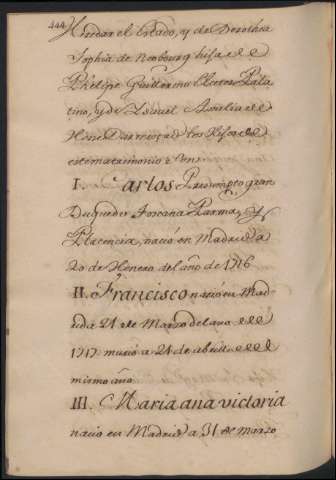 444
Heredar el Estado, y de Dorothea
Sophia de Neobourg hija de
Phelipe Guillermo Elector Pala
tino, y de Amelia de
Hese Los Hijos de
este matrimonio
I. Carlos gran
Duque de Toscana Parma, y
Placencia, nació en Madrid a
20 de Henero del año de 1716
II. Francisco nació en Mad
rid a 21 de Marzo del año
1717 murió a 21 de abril
mismo año
III. Maria ana victoria
nacio en Madrid a 31 de Marzo